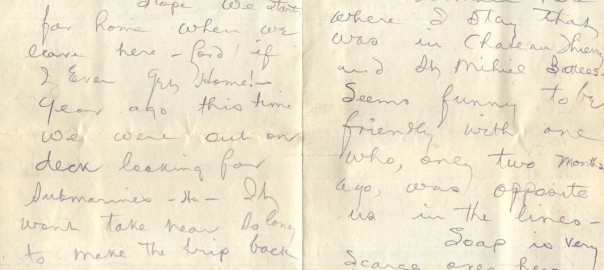 Hope we start
for home when we
leave here – Lord! if
I Ever Get Home! –
Year ago this time
we were out on
deck looking for
Submarines – Ha – It
wont take near so long
to make the trip back
where I stay that
was in Chateau Thierry
and St Mihiel Battles.
Seems funny to be
friendly with one
who, only two months
ago, was opposite
us in the lines –
Soap is very
Scarce over here